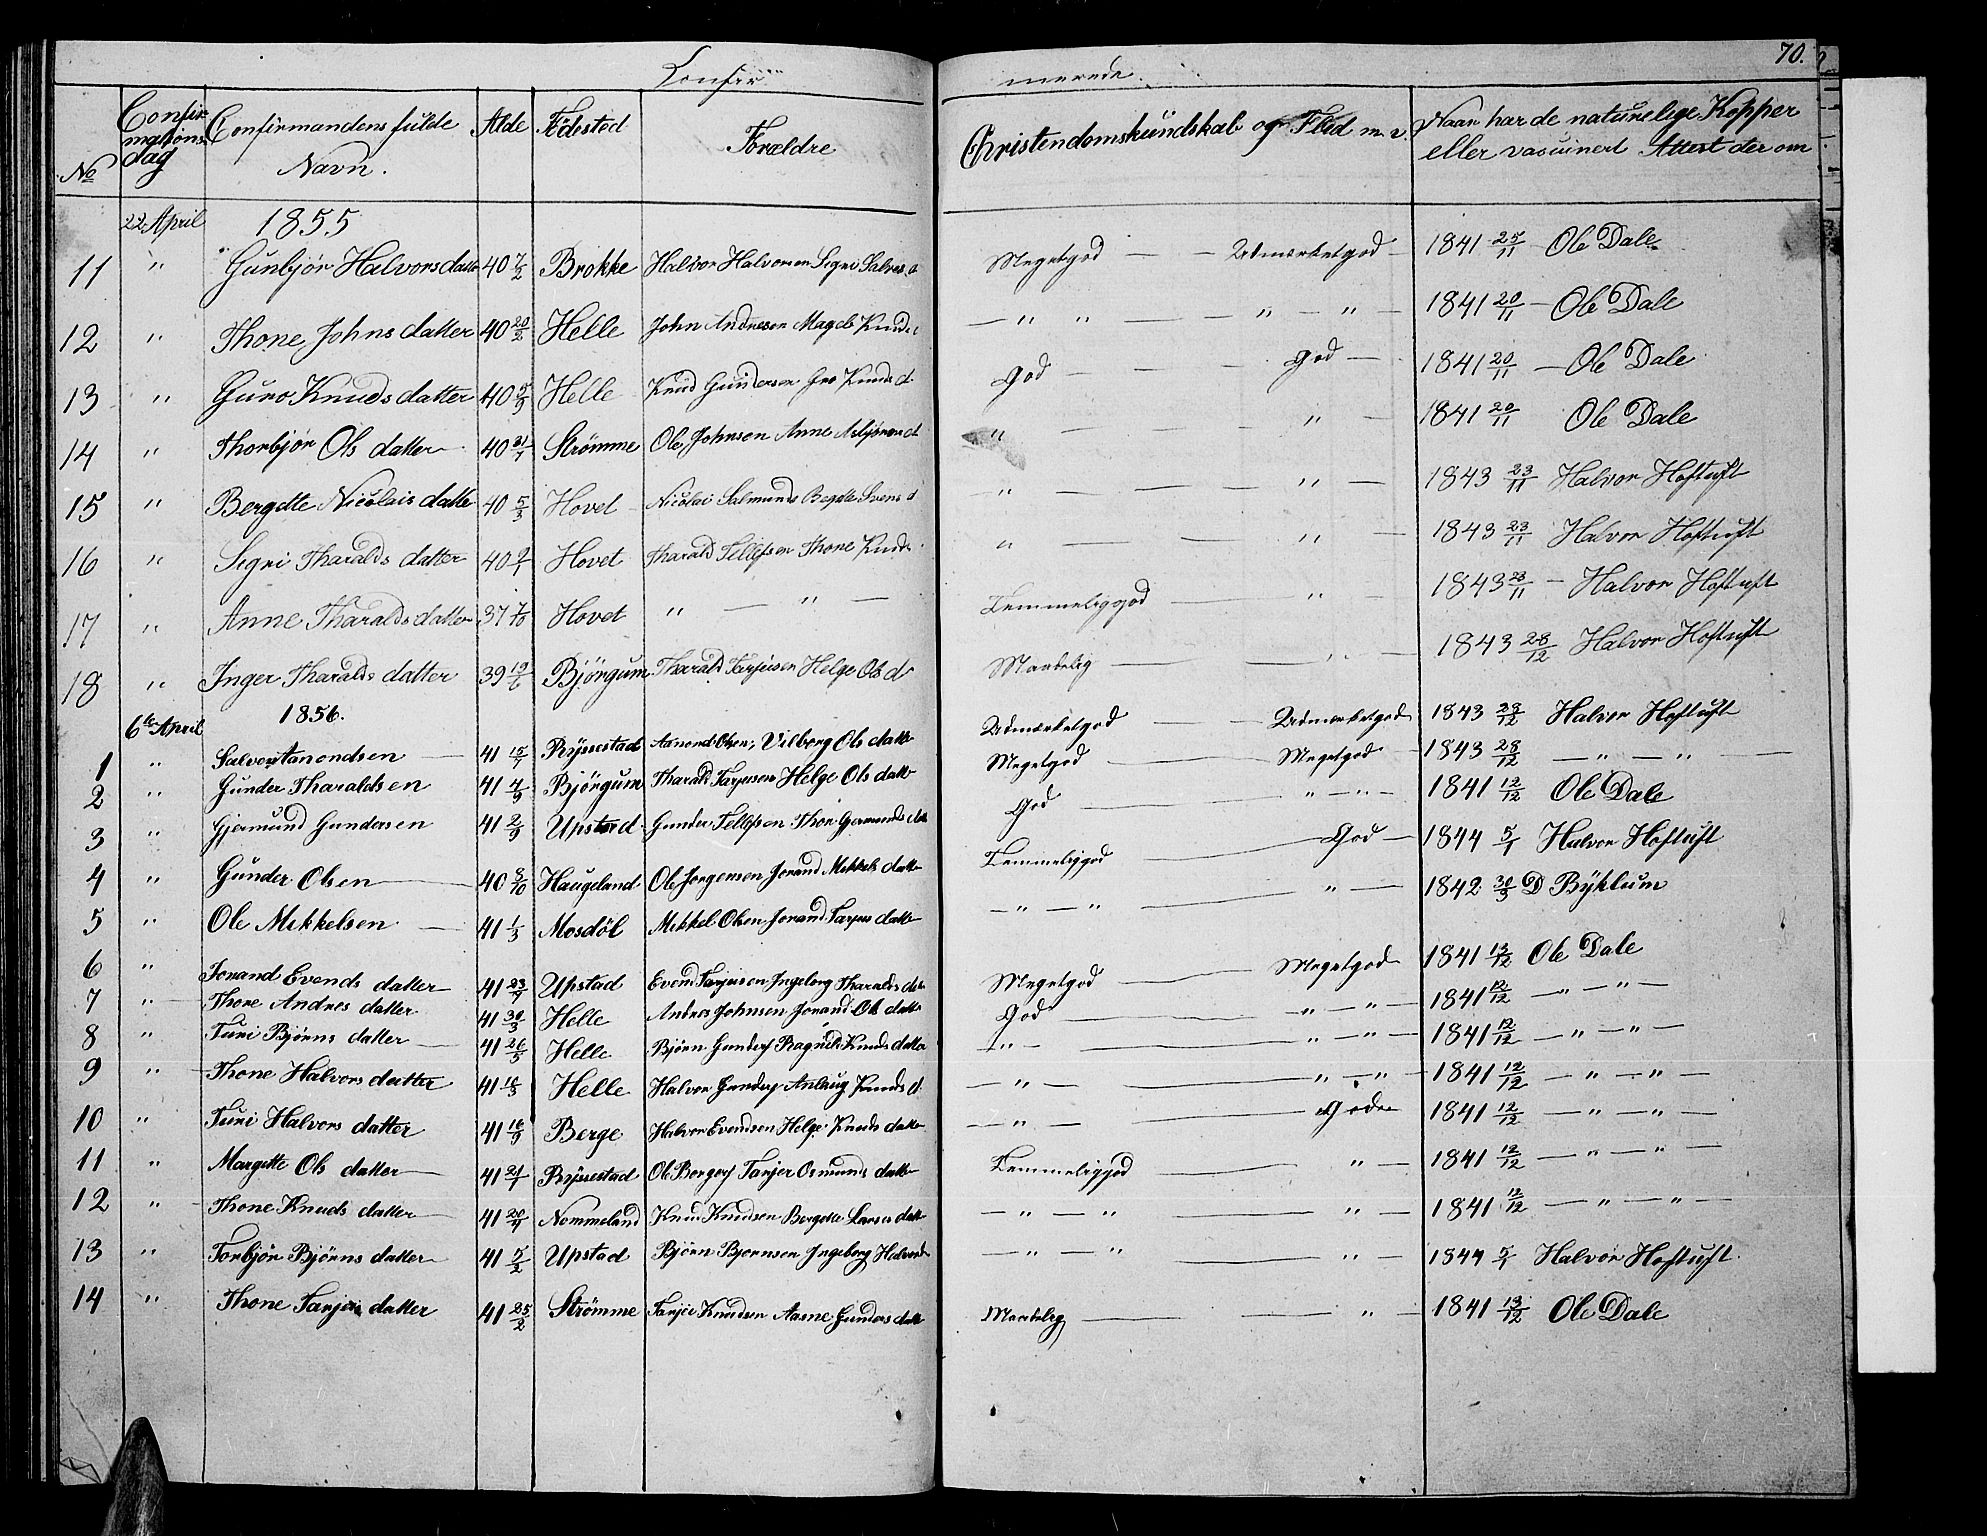 Confir merede. 70.
No Confirmationsdag Confirmandens fulde Navn. Alde Födested Forældre Christendomskundskab og Flid m. v. Naar har de naturelige Kopper eller vaccinert Attest der om
22 April 1855
11 " Gunbjör Halvorsdatter 40 7/2 Brokke Halvor Halvorsen Segri Salves d Megetgod — — Udmærketgod — 1841 25/11 — Ole Dale
12 " Thone Johns datter 40 20/2 Helle John Andresen Knuds d — " " — — " — " — 1841 20/11 — Ole Dale
13 " Guro Knuds datter 40 5/9 Helle Knud Gundersen Gro Knuds d God — — — God — 1841 20/11 — Ole Dale
14 " Thorbjör Ols datter 40 31/7 Strömme Ole Johnsen Anne d " — — — " — 1841 20/11 Ole Dale
15 " Bergette Nicolais datter 40 5/3 Hovet Nicolai Salmunds Svens d — " — — — " — 1843 23/11 Halvor Hoftuft
16 " Segri Tharalds datter 40 9/1 Hovet Tharald Tellefsen Thone Knuds " — — — " — 1843 23/11 Halvor Hoftuft
17 " Anne Tharalds datter 37 7/10 Hovet " — " — Temmeliggod — " — 1843 23/11 — Halvor Hoftuft
18 " Inger Tharalds datter 39 19/6 Björgum Tharald Tarjeisen Helge Ols d Maadelig — — " — 1843 28/12 Halvor Hoftuft
6te April 1856.
1 " Salve Aanondsen — 41 15/7 Ryssestad Aanond Olsen, Vilborg Ols datte Udmærketgod — — Udmærketgod 1843 28/12 Halvor Hoftuft
2 " Gunder Tharaldsen 41 4/9 Bjørgum Tharald Tarjeisen Helge Ols datte Megetgod — Megetgod — 1843 28/12 — " — " —
3 " Gjermund Gundersen 41 2/9 Upstad Gunder Tellefsen Thore Gjermunds datte God — " — " — 1841 12/12 Ole Dale
4 " Gunder Olsen — 40 8/10 Haugeland Ole Jorgensen Jorand Mikkels datte Temmeliggod — God — 1844 5/1 Halvor Hoftuft
5 " Ole Mikkelsen — 41 1/3 Mosdöl Mikkel Olsen Jorand Tarjeis datte — " — " — " — 1842 30/3 D Byklum
6 " Jorand Evends datter — 41 23/7 Upstad Evend Tarjeisen Ingeborg Tharalds datte Megetgod — Megetgod 1841 12/12 Ole Dale
7 " Thone Andres datter 41 30/3 Helle Andres Johnsen Jorand Ols datte God — " — " — 1841 12/12 — " — " —
8 " Turi Bjørns datter — 41 26/5 Helle Bjørn Gunders Ragnild Knuds datter — " — — " — " — 1841 12/12 — " — " —
9 " Thone Halvors datter 41 18/3 Helle Halvor Gunders Knuds d — " — — " — " — 1841 12/12 — " — " —
10 " Turi Halvors datter 41 16/9 Berge Halvor Evendsen Helge Knuds datte — " — — God — 1841 12/12 — " — " —
11 " Margitte Ols datter — 41 21/1 Ryssestad Ole Tarjer Osmunds datte Temmeliggod — " — 1841 12/12 — " — " —
12 " Thone Knuds datter — 41 20/7 Nommeland Knud Knudsen Bergette Larses datte — " — " — " — 1841 12/12 — " — " —
13 " Torbjör Bjørns datter — 41 5/2 Upstad Bjørn Bjørnsen Ingeborg Halvords — " — " — " — 1844 5/1 Halvor Hoftuft
14 " Thone Tarjeis datter 41 25/2 Strømme Tarjei Knudsen Aasne Gunders datte Maadelig — — " — 1841 13/12 Ole Dale